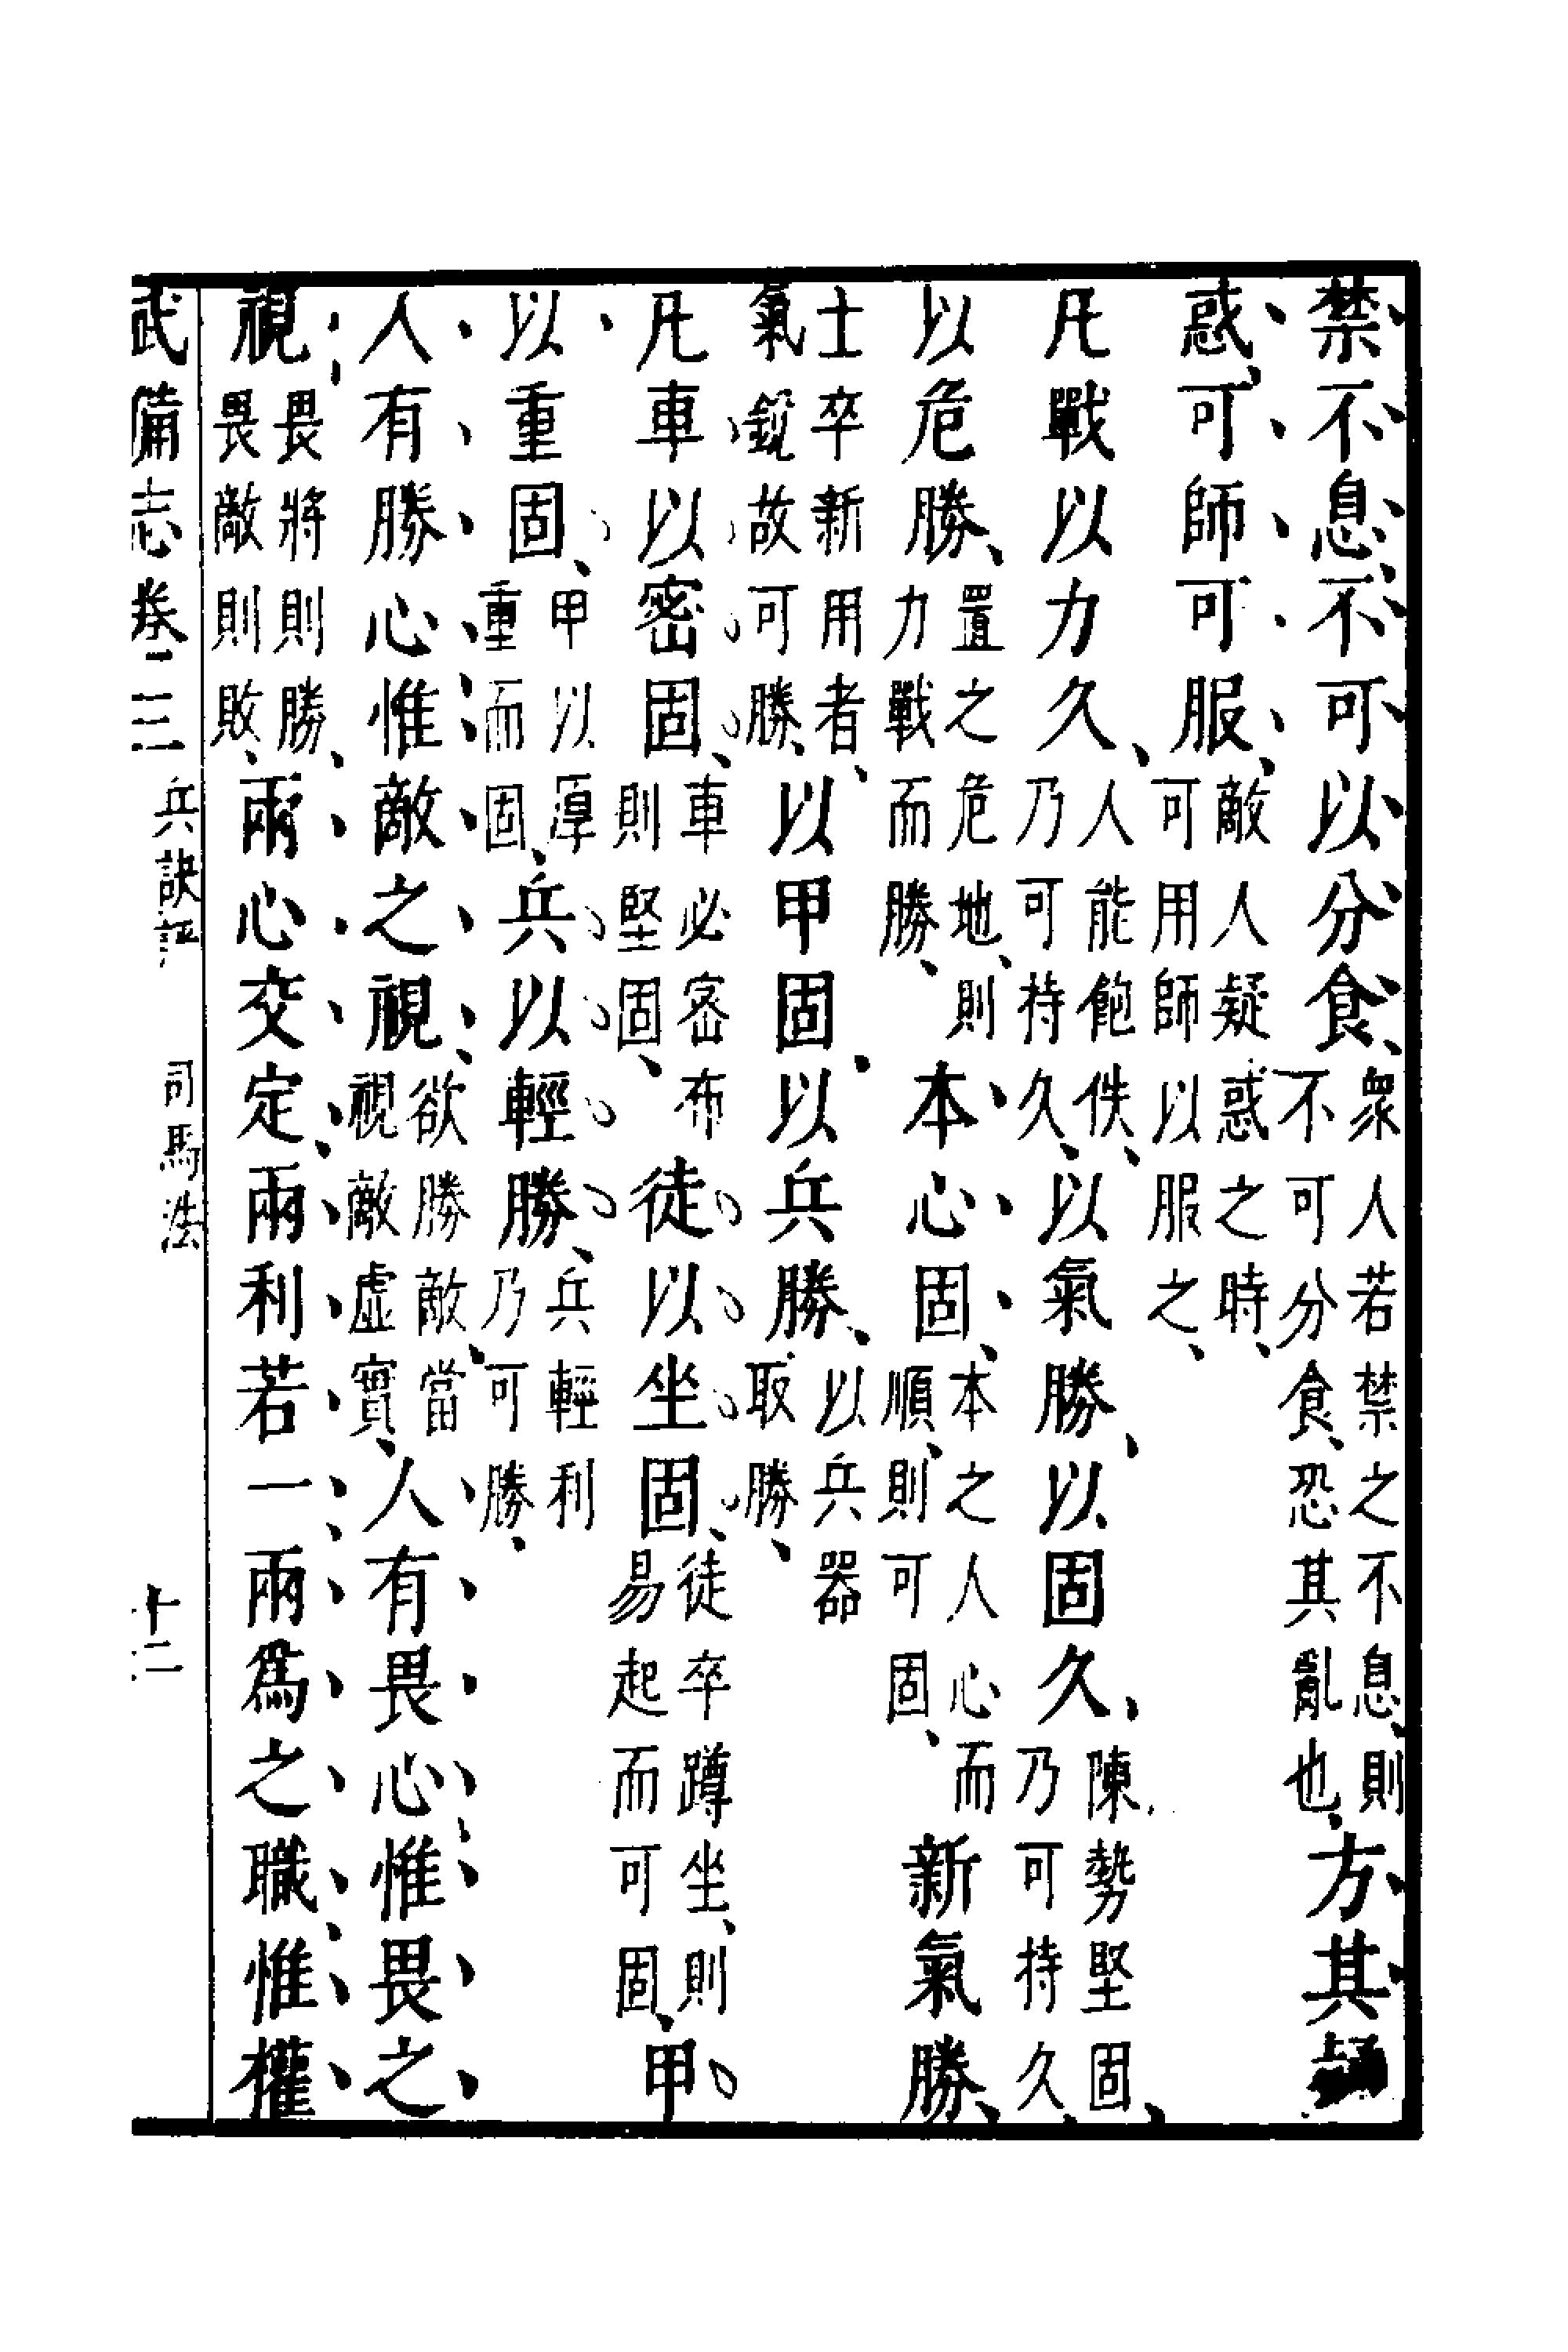 禁不息、不可以分食、衆人若禁之不息、則不可分食、恐其亂也、方其
惑、可師可服、敵人疑惑之時、可用師以服之、
凡戰以力久、人能飽佚、乃可持久、以氣勝、以固久、陳勢堅固、乃可持久、
以危勝、置之危地、則力戰而勝、本心固、本之人心而順、則可固、新氣勝、
士卒新用者、氣銳故可勝、以甲固、以兵勝、以兵器取勝、
凡車以密固、車必密布則堅固、徒以坐固、徒卒蹲坐、則易起而可固、甲
以重固、甲以厚重而固、兵以輕勝、兵輕利乃可勝、
人有勝心惟敵之視、欲勝敵、當視敵虛實、人有畏心、惟畏之
視畏將則勝、畏敵則敗、兩心交定、兩利若一、兩爲之職、惟權
武備志卷三 兵訣評 司馬法 十二